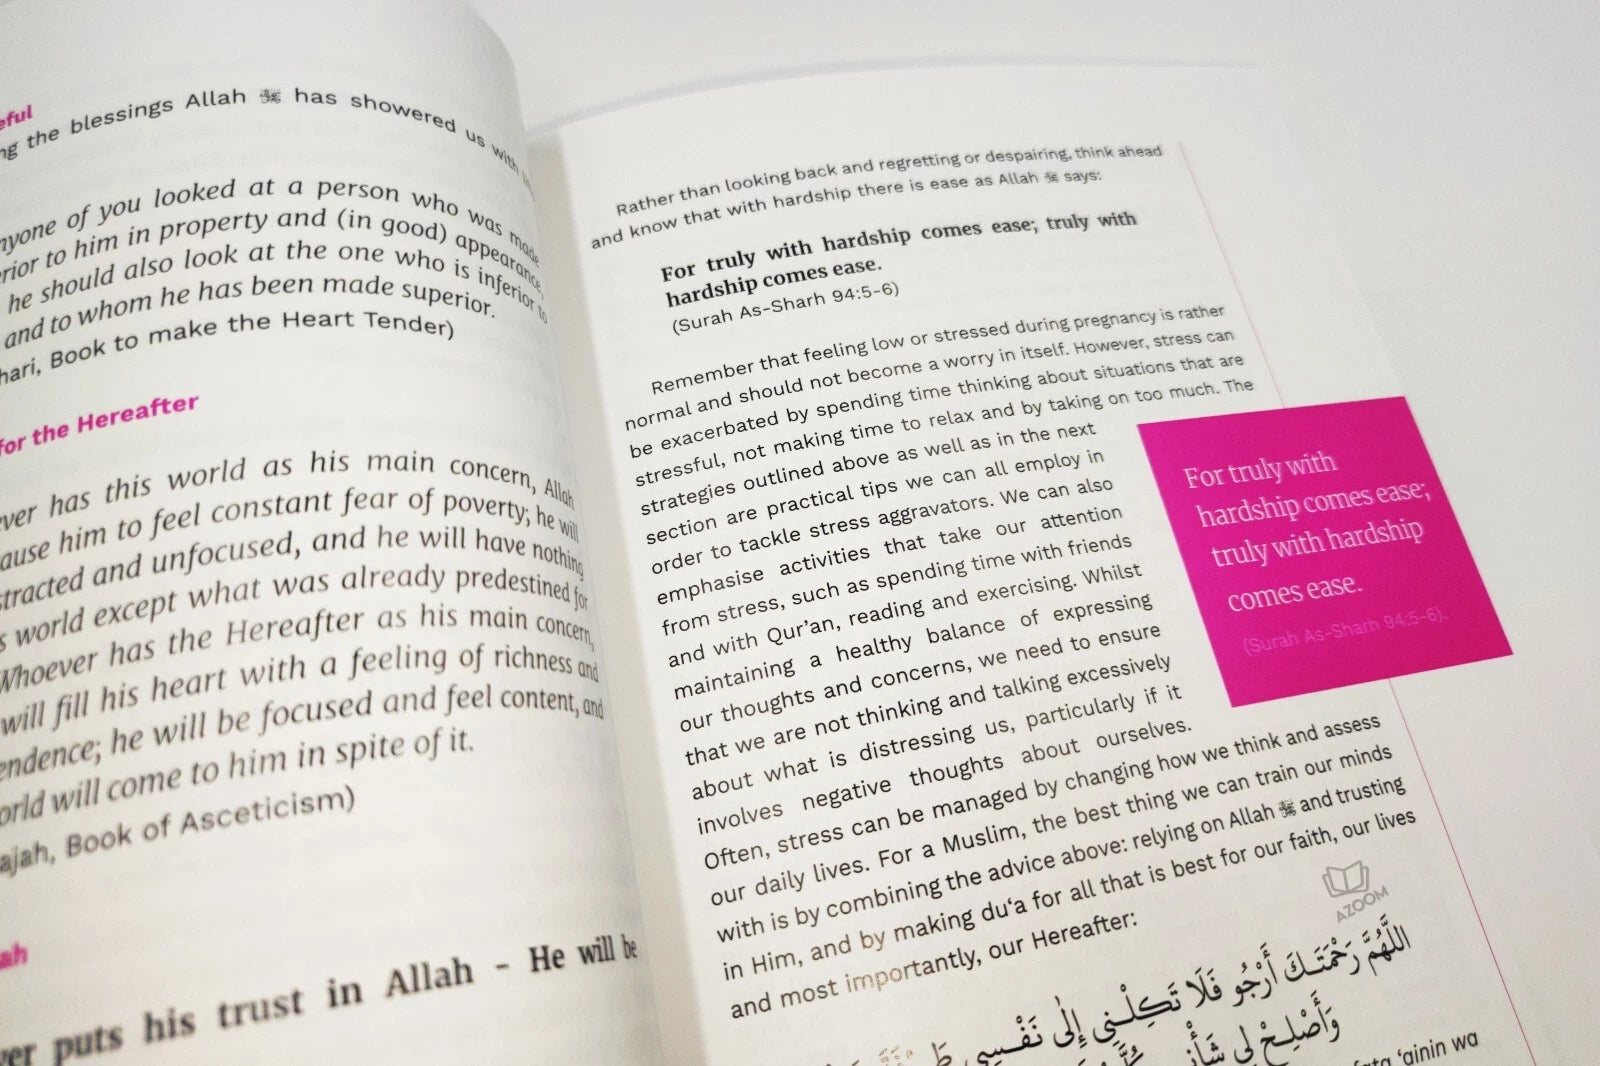 the blessings Allah ﷻ has showered us with
of you looked at a person who was made
to him in property and (in good) appearance,
he should also look at the one who is inferior to
and to whom he has been made superior.
Book to make the Heart Tender)
for the Hereafter
has this world as his main concern, Allah
him to feel constant fear of poverty; he will
and unfocused, and he will have nothing
world except what was already predestined for
Whoever has the Hereafter as his main concern,
will fill his heart with a feeling of richness and
he will be focused and feel content, and
will come to him in spite of it.
Book of Asceticism)
puts his trust in Allah – He will be
Rather than looking back and regretting or despairing, think ahead
and know that with hardship there is ease as Allah ﷻ says:
For truly with hardship comes ease; truly with
hardship comes ease.
(Surah As-Sharh 94:5-6)
Remember that feeling low or stressed during pregnancy is rather
normal and should not become a worry in itself. However, stress can
be exacerbated by spending time thinking about situations that are
stressful, not making time to relax and by taking on too much. The
strategies outlined above as well as in the next
section are practical tips we can all employ in
order to tackle stress aggravators. We can also
emphasise activities that take our attention
from stress, such as spending time with friends
and with Qur’an, reading and exercising. Whilst
maintaining a healthy balance of expressing
our thoughts and concerns, we need to ensure
that we are not thinking and talking excessively
about what is distressing us, particularly if it
involves negative thoughts about ourselves.
Often, stress can be managed by changing how we think and assess
our daily lives. For a Muslim, the best thing we can train our minds
with is by combining the advice above: relying on Allah ﷻ and trusting
in Him, and by making du‘a for all that is best for our faith, our lives
and most importantly, our Hereafter:
For truly with
hardship comes ease;
truly with hardship
comes ease.
(Surah As-Sharh 94:5-6).
AZOOM
اللَّهُمَّ رَحْمَتَكَ أَرْجُو فَلَا تَكِلْنِي إِلٰى نَفْسِي
وَأَصْلِحْ لِي
‘ainin wa